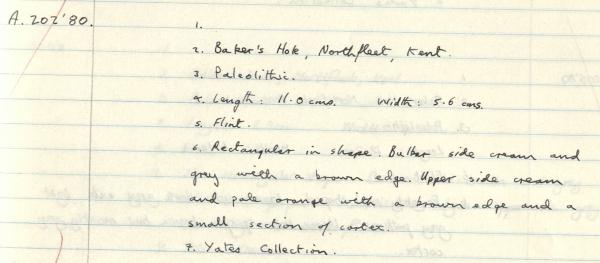 A.202'80.
1.
2. Baker's Hole, Northfleet, Kent.
3. Paleolithic.
4. Length: 11.0 cms. Width: 5.6 cms.
5. Flint.
6. Rectangular in shape. Bulbar side cream and
grey with a brown edge. Upper side cream
and pale orange with a brown edge and a
small section of cortex.
7. Yates Collection.